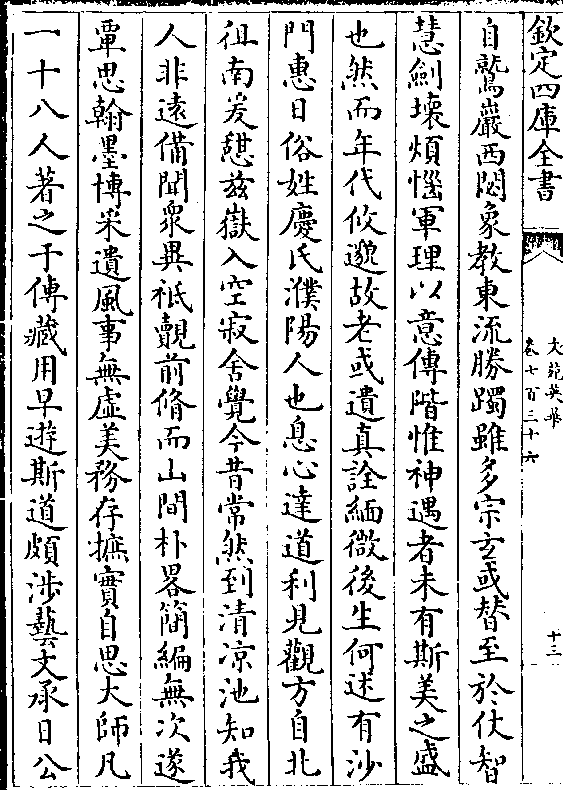 欽定四庫全書
文苑英華
卷七百三十六
十三
自鷲巖西閟象教東流勝躅雖多宗玄或替至於仗智
慧劍壞煩惱軍理以意傳階惟神遇者未有斯美之盛
也然而年代攸邈故老或遺真詮緬微後生何述有沙
門惠日俗姓慶氏濮陽人也息心達道利見觀方自北
徂南爰憇兹嶽入空寂舍覺今昔常然到清凉池知我
人非遠備聞衆異祇覿前脩而山間朴畧簡編無次遂
覃思翰墨博采遺風事無虚美務存摭實自思大師凡
一十八人著之于傳藏用早遊斯道頗渉藝文承日公